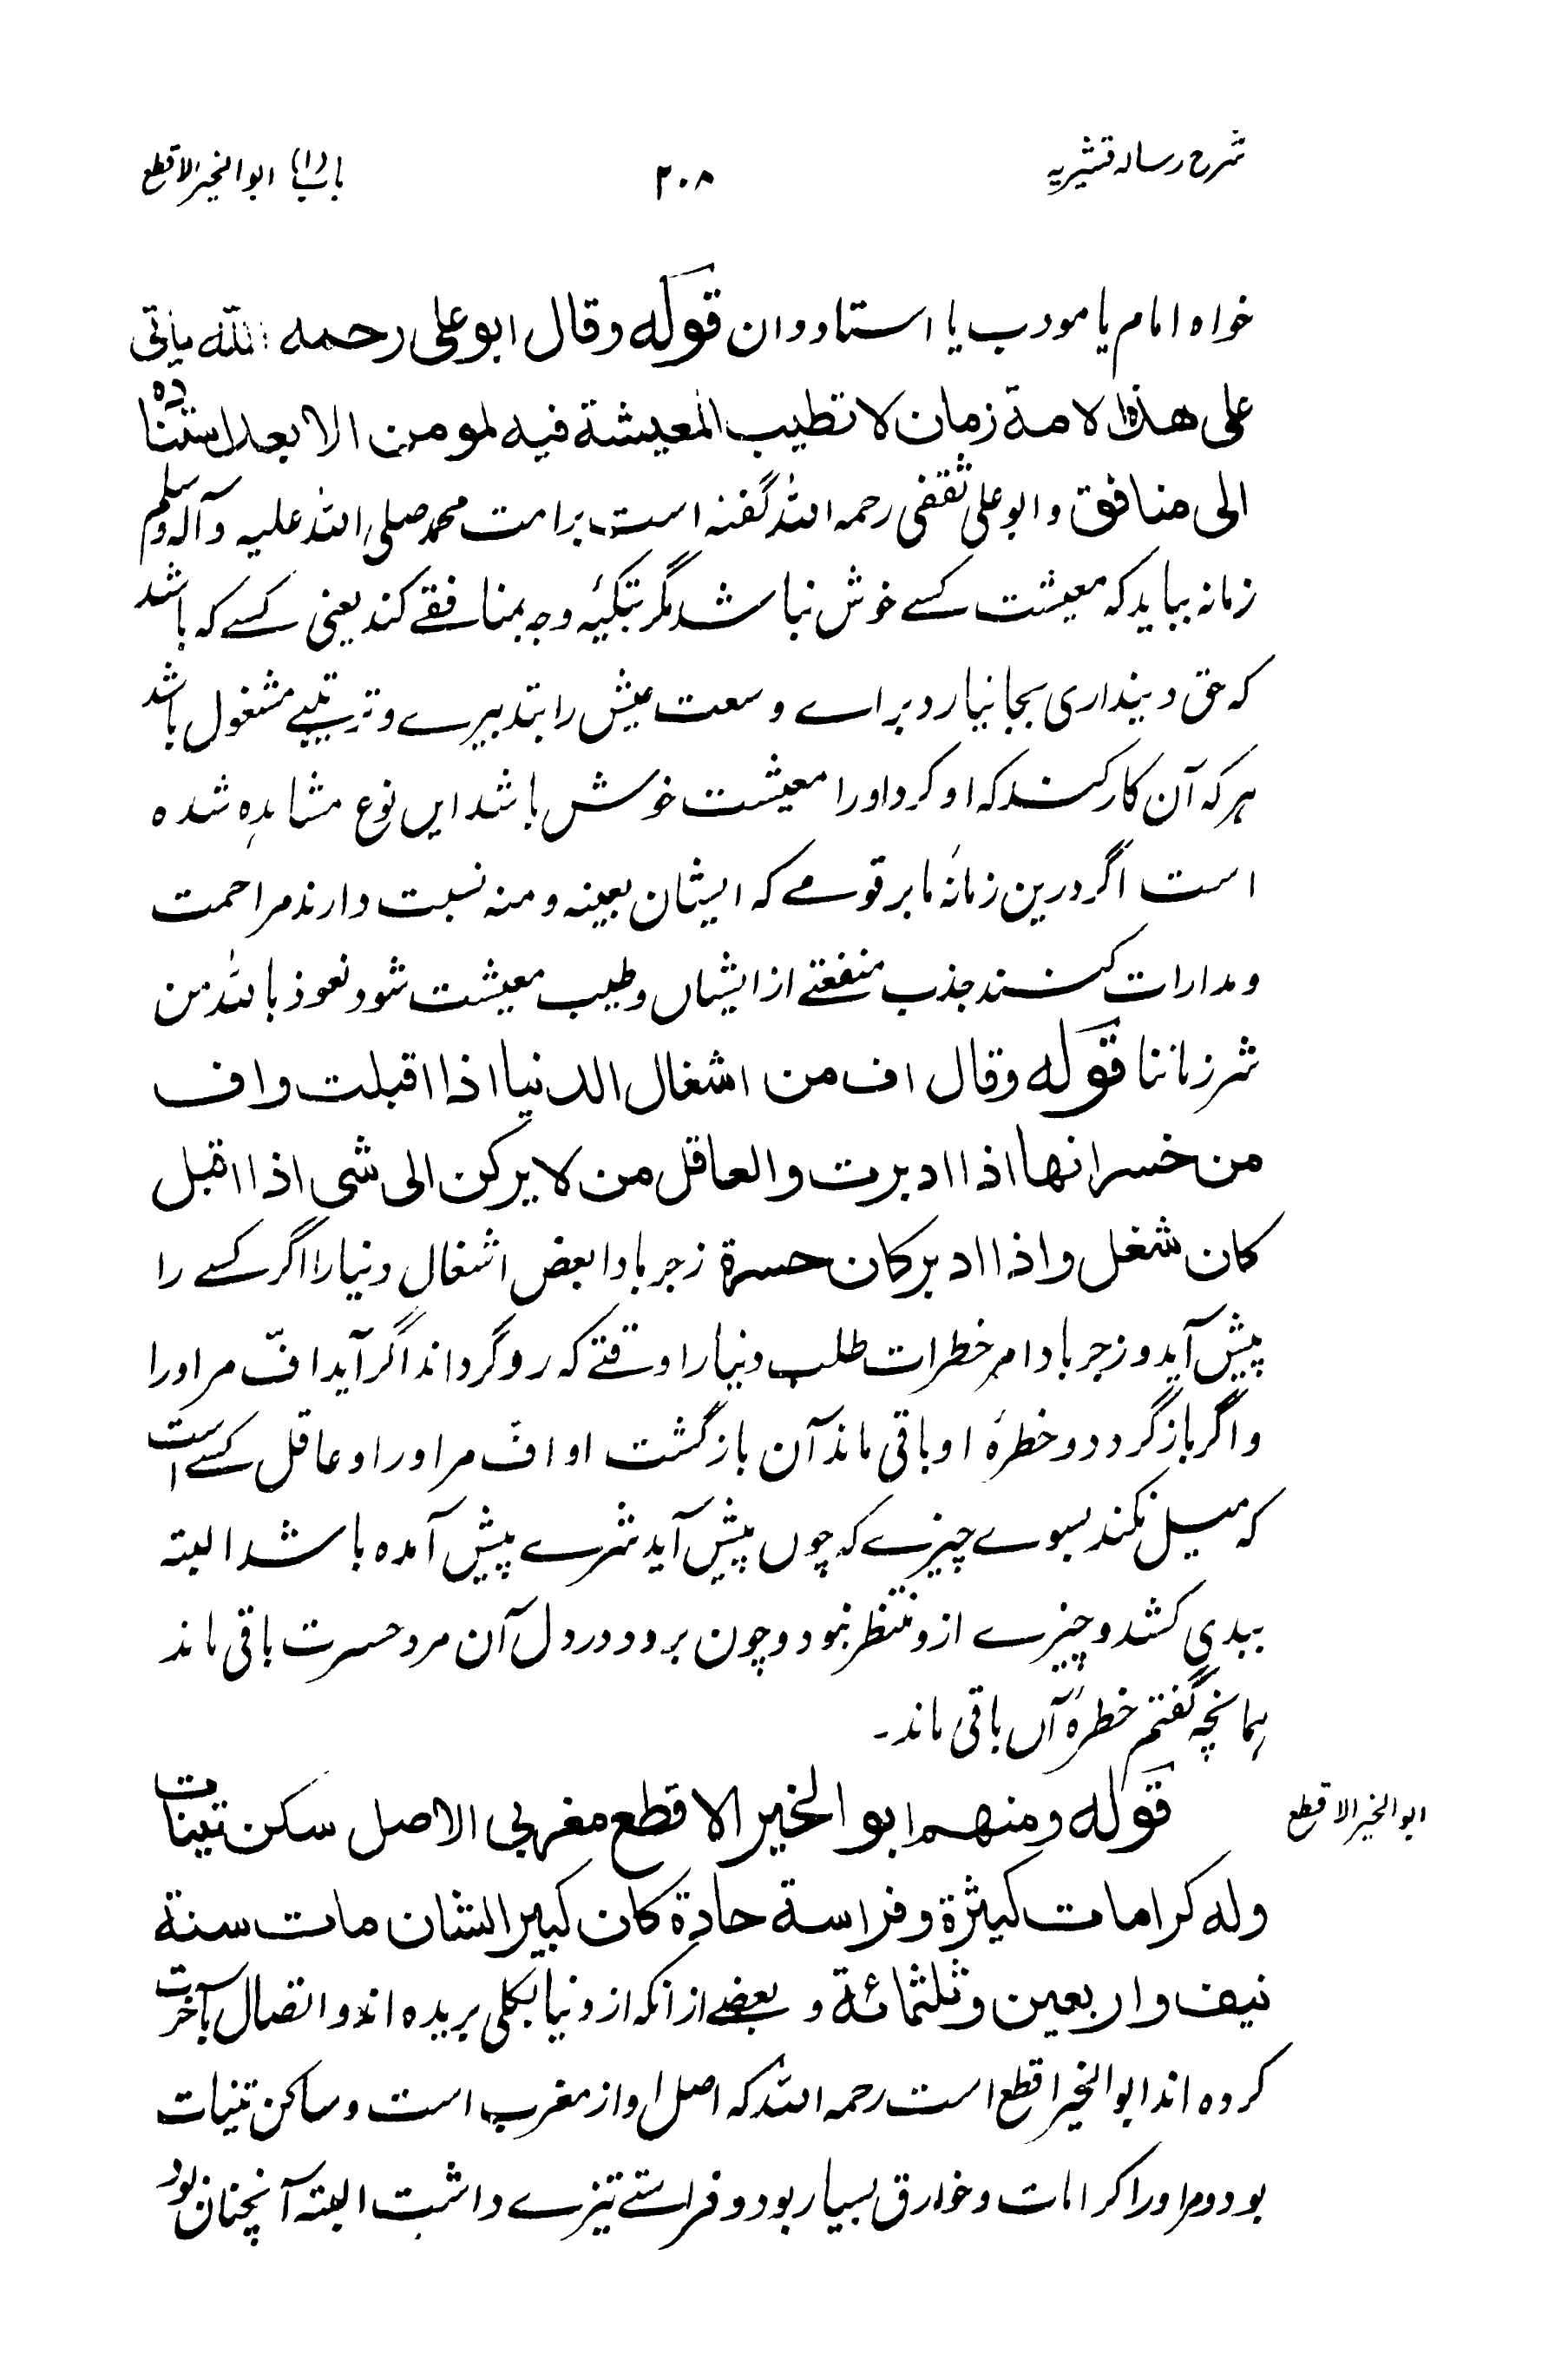 شرح رسالہ قشیریہ
۲۰۸
باب (۱) ابوالخیر الاقطع
خواہ امام یا مودب یا استاد دان قولہ وقال ابو علی رحمہ اللہ یاتی
علی ھذہ الامۃ زمان لا تطیب المعیشۃ فیہ لمومن الا بعد استنادہ
الی منافق و ابو علی ثقفی رحمہ اللہ گفتہ است برامت محمد صلی اللہ علیہ وآلہ وسلم
زمانہ بیاید کہ معیشت کسے خوش نباشد مگر بتکیۂ وجہ بمنافقے کند یعنی کسے کہ باشد
کہ حق دینداری بجا نیارد براے وسعت عیش را بتدبیرے و ترتیبے مشغول باشد
ہر کہ آن کار کند کہ او کرد اورا معیشت خوش باشد ایں نوع مشاہدہ شدہ
است اگر درین زمانۂ ما بر قومے کہ ایشان بعینہ ومنہ نسبت دارند مراحمت
و مدارات کنند جذب منفعتے از ایشاں وطیب معیشت شود نعوذ باللہ من
شر زماننا قولہ وقال اف من اشغال الدنیا اذا اقبلت واف
من خسرانھا اذا ادبرت والعاقل من لا یرکن الی شی اذا اقبل
کان شغل واذا ادبر کان حسرۃ زجر بادا بعض اشغال دنیا را اگر کسے را
پیش آید و زجر بادا مر خطرات طلب دنیا را وقتے کہ روگرداند اگر آید افّ مر اورا
واگر بازگردد و خطرۂ او باقی ماند آن بازگشت او افّ مر اورا و عاقل کسے است
کہ میل نکند بسوے چیزے کہ چوں پیش آید شرے پیش آمدہ باشد البتہ
ببدی کشد و چیزے ازو منتظر نبود و چون برود در دل آن مرد حسرت باقی ماند
ہمانچہ گفتم خطرۂ آں باقی ماند۔
ابوالخیر الاقطع
قولہ ومنھم ابو الخیر الاقطع مغربی الاصل سکن تینات
ولہ کرامات کثیرۃ وفراسۃ حادۃ کان کبیر الشان مات سنۃ
نیف واربعین وثلثمائۃ و بعضے از انکہ از دنیا بکلی بریدہ اند و اتصال بآخرت
کردہ اند ابوالخیر اقطع است رحمہ اللہ کہ اصل او از مغرب است و ساکن تینات
بود و مر اورا کرامات و خوارق بسیار بود و فراستے تیزے داشت البتہ آنچنان بود